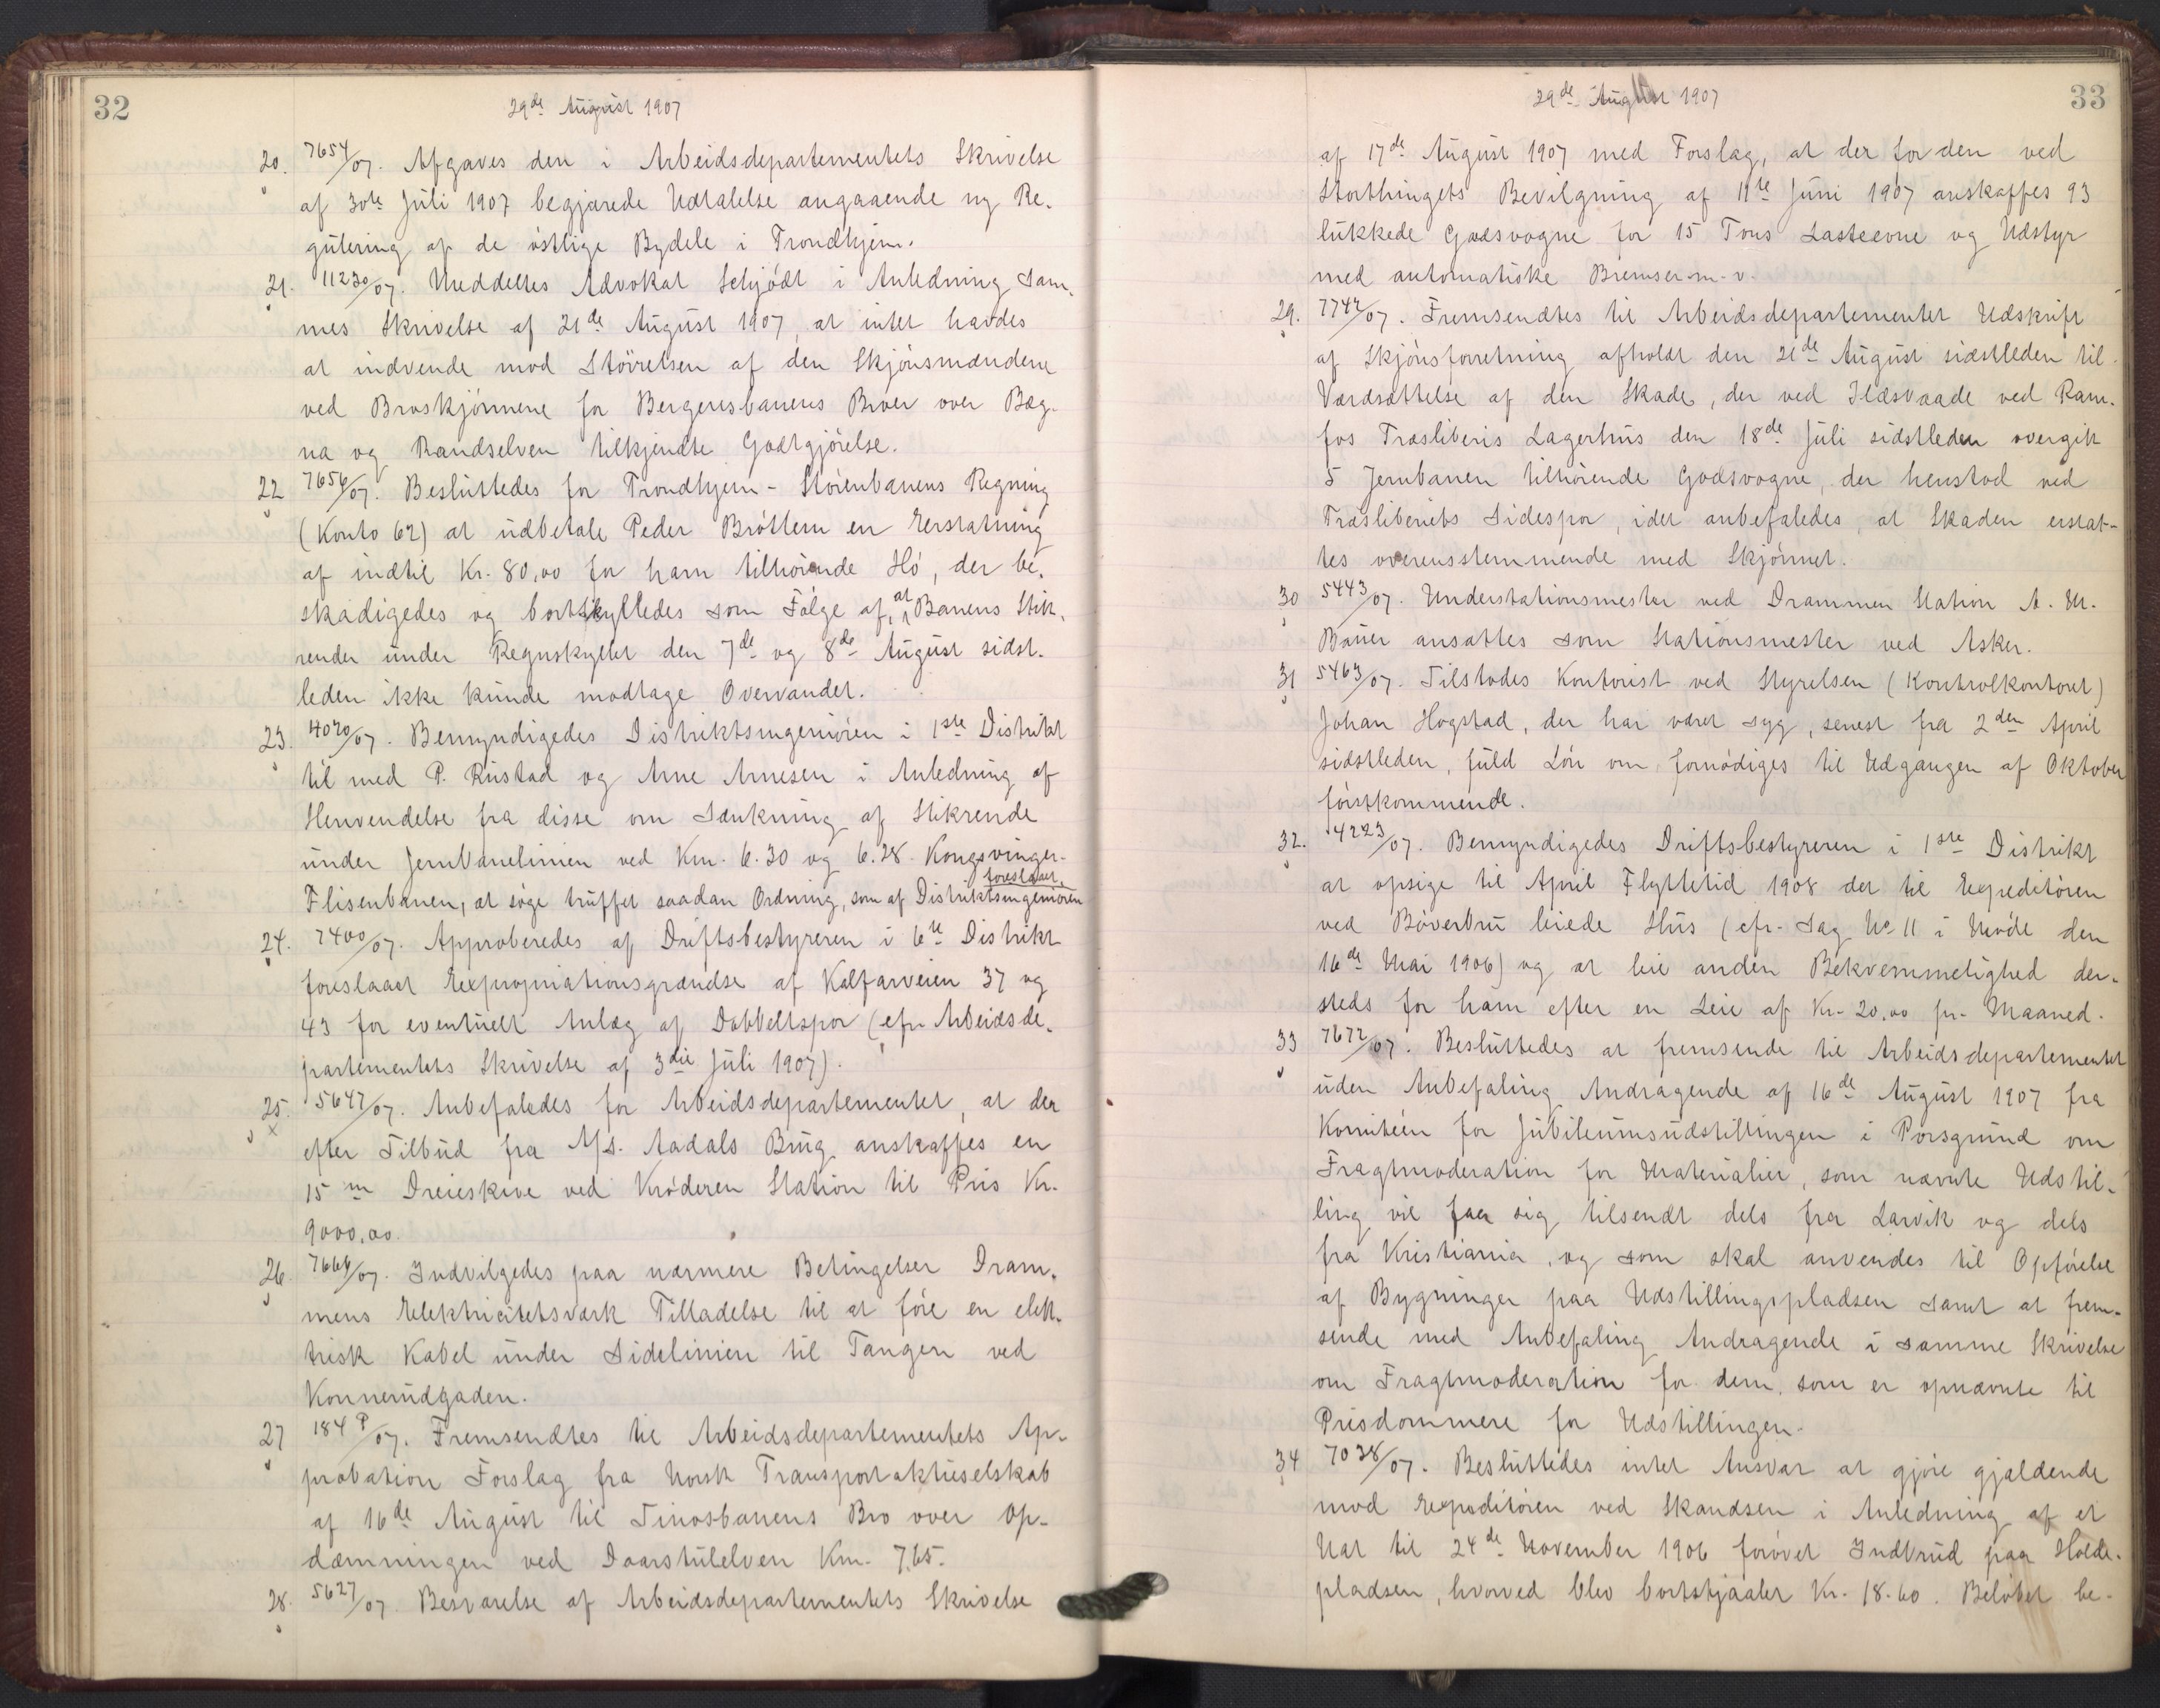 32
29de August 1907
20. 7654/07. Afgaves den i Arbeidsdepartementets Skrivelse
af 30te Juli 1907 begjærede Udtalelse angaaende ny Re-
gulering af de östlige Bydele i Trondhjem.
21. 11230/07. Meddeltes Advokat Schjödt i Anledning sam-
mes Skrivelse af 21de August 1907, at intet havdes
at indvende mod Störrelsen af den Skjönsmændene
ved Broskjönnene for Bergensbanens Broer over Bæg-
na og Randselven tilkjendte Godtgjörelse.
22 7656/07. Besluttedes for Trondhjem-Störenbanens Regning
(Konto 62) at udbetale Peder Bröttem en Erstatning
af indtil Kr. 80,00 for ham tilhörende Hö, der be-
skadigedes og bortskylledes som Fölge af, at Banens Stik-
render under Regnskyllet den 7de og 8de August sidst-
leden ikke kunde modtage Overvandet.
23. 4020/07. Bemyndigedes Distriktsingeniören i 1ste Distrikt
til med P. Rustad og Arne Arnesen i Anledning af
Henvendelse fra disse om Sænkning af Stikrende
under Jernbanelinien ved Km. 6.30 og 6.28 Kongsvinger-
Flisenbanen, at söge truffet saadan Ordning, som af Distriktsingeniören foreslaaet.
24. 7400/07. Approberedes af Driftsbestyreren i 6te Distrikt
foreslaaet Expropriationsgrændse af Kalfarveien 37 og
43 for eventuelt Anlæg af Dobbeltspor (cfr. Arbeidsde-
partementets Skrivelse af 3die Juli 1907).
25. 5647/07. Anbefaledes for Arbeidsdepartementet, at der
efter Tilbud fra A/S. Aadals Brug anskaffes en
15 m Dreieskive ved Kröderen Station til Pris Kr.
9000,00.
26. 7666/07. Indvilgedes paa nærmere Betingelser Dram-
mens Elektricitetsværk Tilladelse til at före en elek-
trisk Kabel under Sidelinien til Tangen ved
Konnerudgaden.
27 184 P/07. Fremsendtes til Arbeidsdepartementets Ap-
probation Forslag fra Norsk Transportaktieselskab
af 16de August til Tinosbanens Bro over Op-
dæmningen ved Daarstulelven Km. 7.65.
28. 5627/07. Besvarelse af Arbeidsdepartementets Skrivelse
33
29de August 1907
af 17de August 1907 med Forslag, at der for den ved
Storthingets Bevilgning af 11te Juni 1907 anskaffes 93
lukkede Godsvogne for 15 Tons Lasteevne og Udstyr
med automatiske Bremser m. v.
29. 7742/07. Fremsendtes til Arbeidsdepartementet Udskrift
af Skjönsforretning afholdt den 21de August sidstleden til
Værdsættelse af den Skade, der ved Ildsvaade ved Ram-
fos Træsliberis Lagerhus den 18de Juli sidstleden overgik
5 Jernbanen tilhörende Godsvogne, der henstod ved
Træsliberiets Sidespor, idet anbefaledes, at Skaden erstat-
tes overensstemmende med Skjönnet.
30 5443/07. Understationsmester ved Drammen Station A. M.
Bauer ansattes som Stationsmester ved Asker.
31 5463/07. Tilstodes Kontorist ved Styrelsen (Kontrolkontoret)
Johan Hogstad, der har været syg, senest fra 2den April
sidstleden, fuld Lön om fornödiges til Udgangen af Oktober
förstkommende.
32. 4223/07. Bemyndigedes Driftsbestyreren i 1ste Distrikt
at opsige til April Flyttetid 1908 det til Expeditören
ved Böverbru leiede Hus (cfr. Sag No 11 i Möde den
16de Mai 1906) og at leie anden Bekvemmelighed der-
steds for ham efter en Leie af Kr. 20.00 pr. Maaned.
33 7672/07. Besluttedes at fremsende til Arbeidsdepartementet
uden Anbefaling Andragende af 16de August 1907 fra
Komitéen for Jubileumsudstillingen i Porsgrund om
Fragtmoderation for Materialier, som nævnte Udstil-
ling vil faa sig tilsendt dels fra Larvik og dels
fra Kristiania, og som skal anvendes til Opförelse
af Bygninger paa Udstillingspladsen samt at frem-
sende med Anbefaling Andragende i samme Skrivelse
om Fragtmoderation for dem, som er opnævnte til
Prisdommere for Udstillingen.
34 7038/07. Besluttedes intet Ansvar at gjöre gjældende
mod Expeditören ved Skandsen i Anledning af et
Nat til 24de November 1906 forövet Indbrud paa Holde-
pladsen, hvorved blev bortstjaalet Kr. 18.60. Belöbet be-